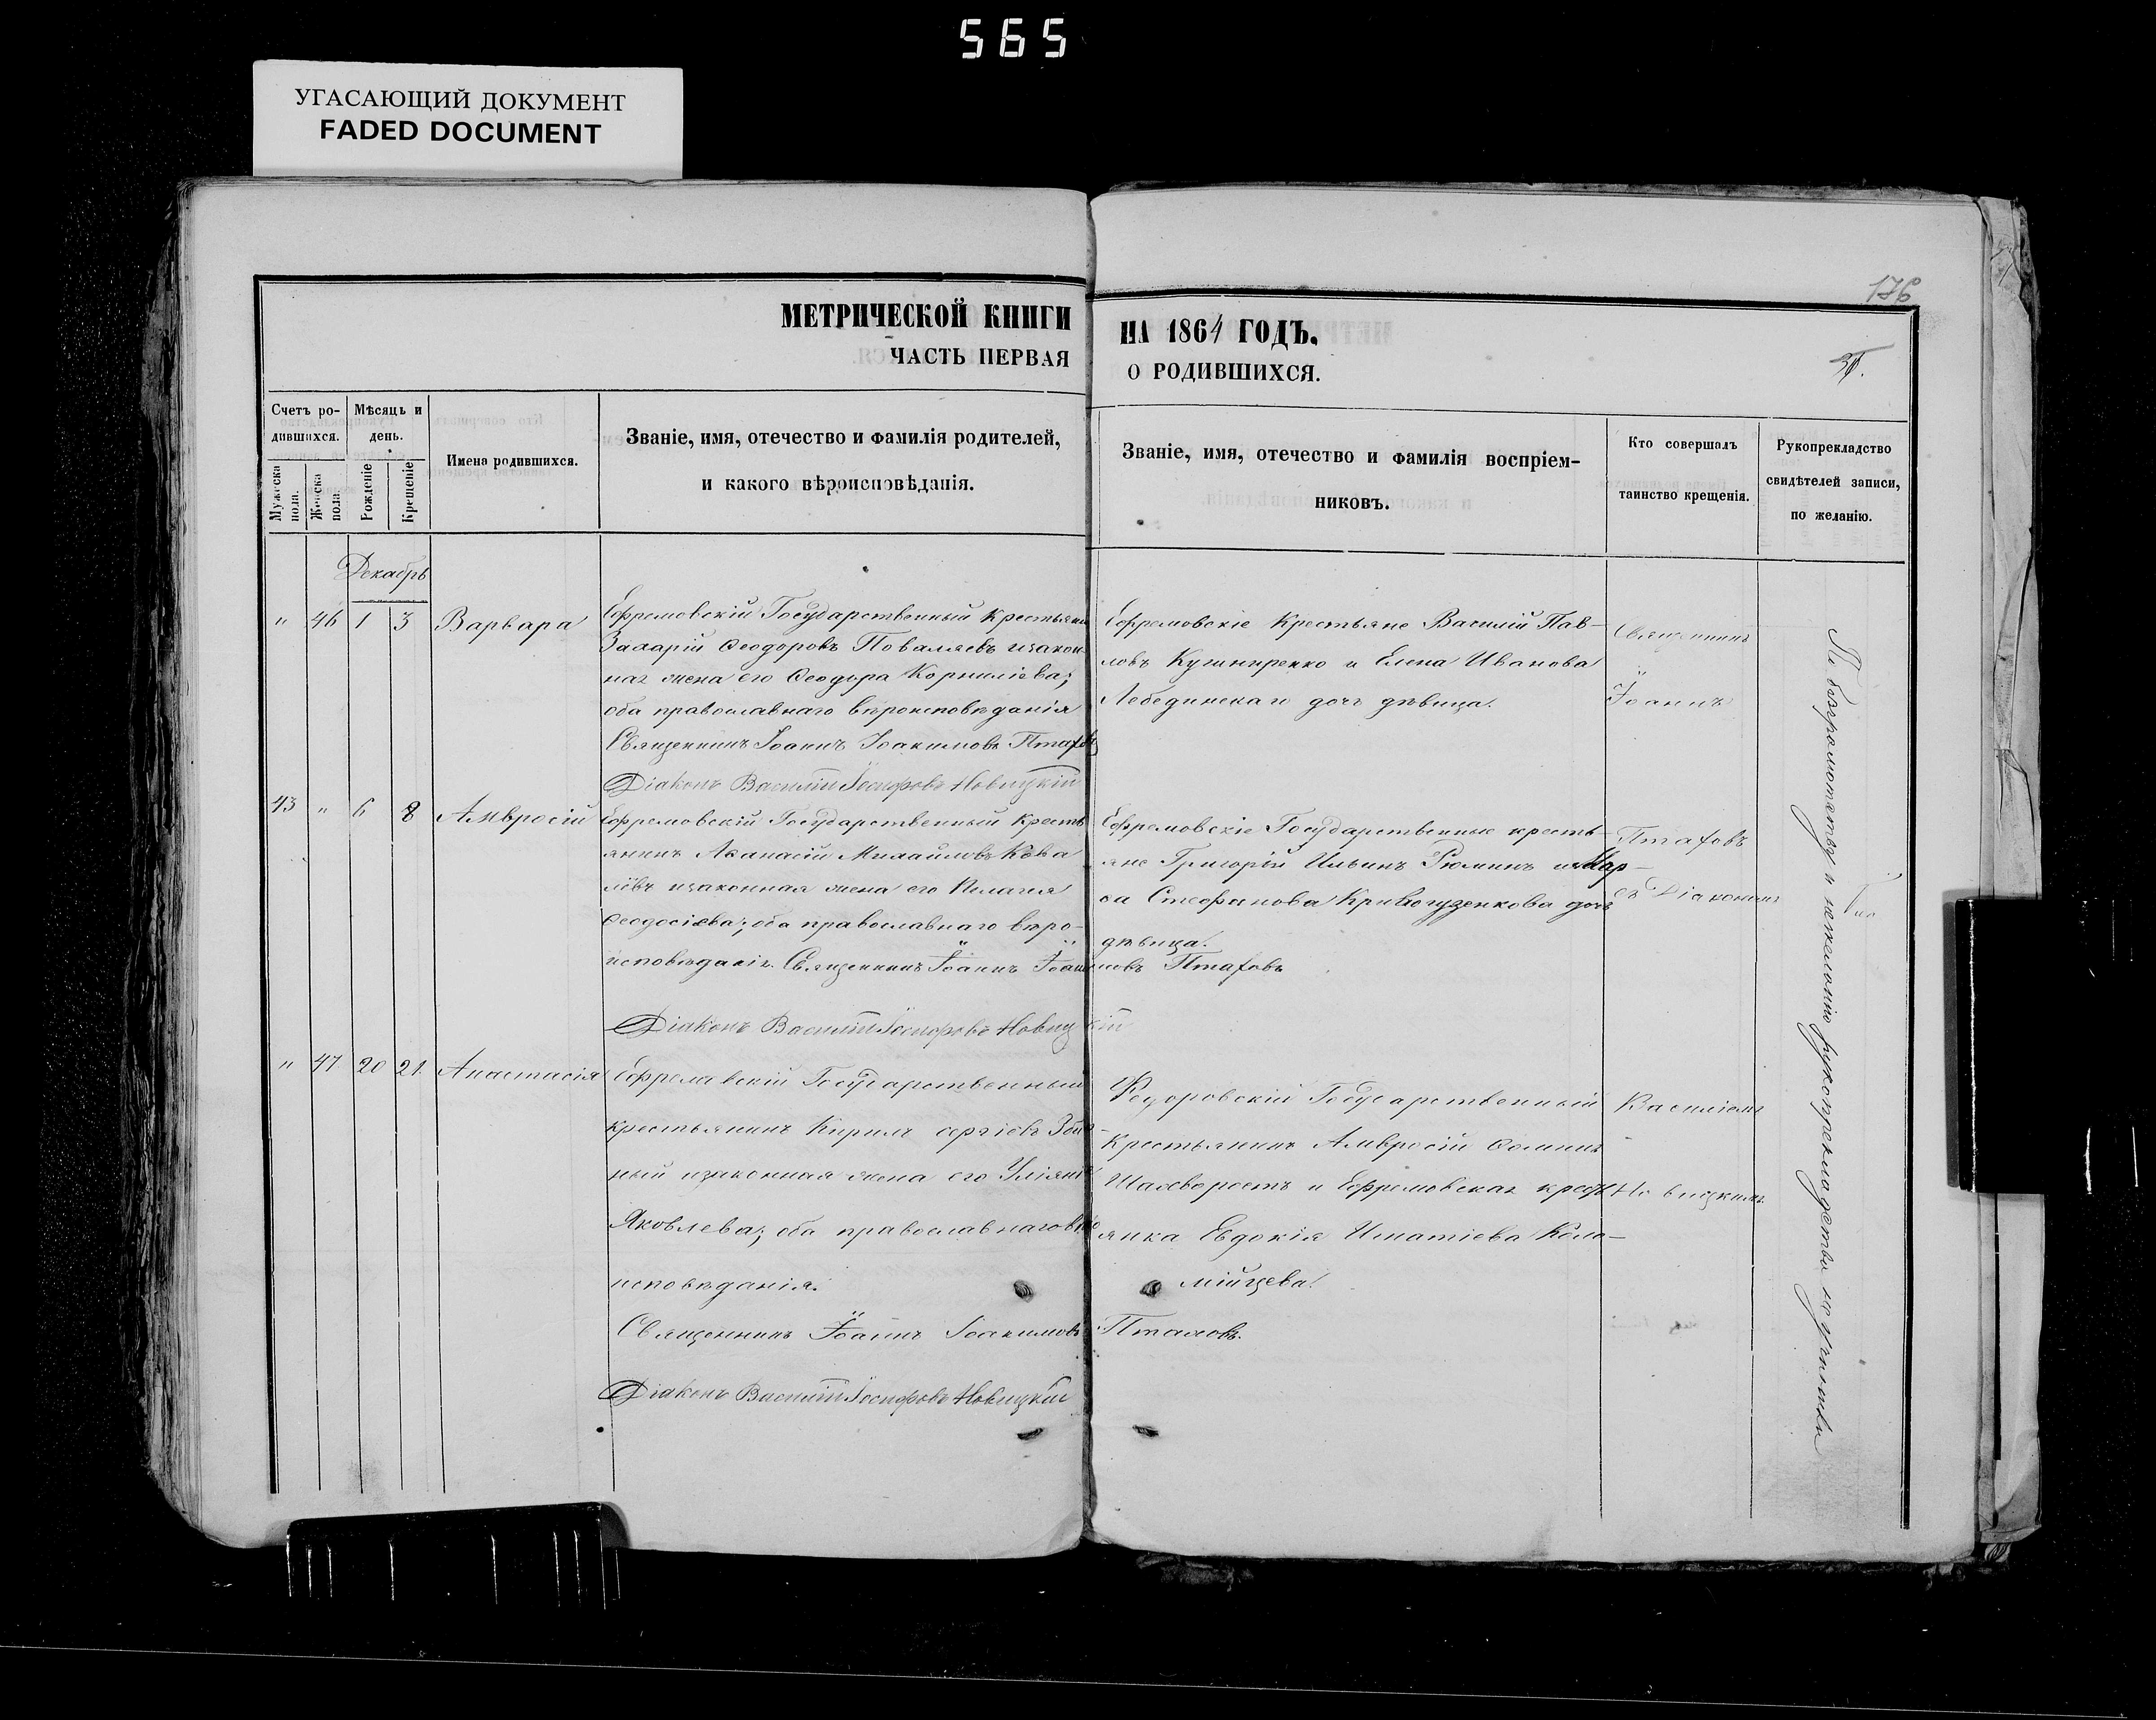 565
УГАСАЮЩИЙ ДОКУМЕНТ
FADED DOCUMENT
176
МЕТРИЧЕСКОЙ КНИГИ НА 1864 ГОДЪ.
ЧАСТЬ ПЕРВАЯ О РОДИВШИХСЯ.
Счетъ ро-
дившихся.
Мужеска
пола.
Женска
пола.
Мѣсяцъ и
день.
Рожденіе
Крещеніе
Имена родившихся.
Званіе, имя, отечество и фамилія родителей,
и какого вѣроисповѣданія.
Званіе, имя, отечество и фамилія воспріем-
никовъ.
Кто совершалъ
таинство крещенія.
Рукоприкладство
свидѣтелей записи,
по желанію.
Декабрь
" 46 1 3 Варвара
Ефремовскій Государственный Крестьянинъ
Захарій Ѳеодоровъ Поваляевъ изакон-
ная жена его Ѳеодора Корниліева;
оба православнаго вѣроисповѣданія
Священникъ Іоаннъ Іоакимовъ Птаховъ
Діаконъ Василій Іосифовъ Новицкій
Ефремовскіе Крестьяне Василій Пав-
ловъ Кушниренко и Елена Иванова
Лебединскаго дочь дѣвица.
Священникъ
Іоаннъ
43 " 6 8 Амвросій
Ефремовскій Государственный Кресть
янинъ Аѳанасій Михайловъ Кова
лёвъ изаконная жена его Пелагея
Ѳеодосіева; оба православнаго вѣро-
исповѣданія. Священникъ Іоаннъ Іоакимовъ Птаховъ
Діаконъ Василій Іосифовъ Новицкій
Ефремовскіе Государственные кресть-
яне Григорій Ильинъ Рюминъ и Мар-
ѳа Стефанова Кривогузенкова дочь
дѣвица.
Птаховъ
съ Діакономъ
" 47 20 21. Анастасія
Ефремовскій Государственный
крестьянинъ Кирилъ Сергіевъ
ный изаконная жена его Уліянія
Яковлева; оба православнаго вѣро
исповѣданія.
Священникъ Іоаннъ Іоакимовъ Птаховъ.
Діаконъ Василій Іосифовъ Новицкій
Федоровскій Государственный
Крестьянинъ Амвросій Ѳоминъ
Шахворостъ и Ефремовская кресть
янка Евдокія Игнатіева Коло-
мійцева.
Василіемъ
Новицкимъ.
По безграмотству и нежеланію рукоприкладства неучинили